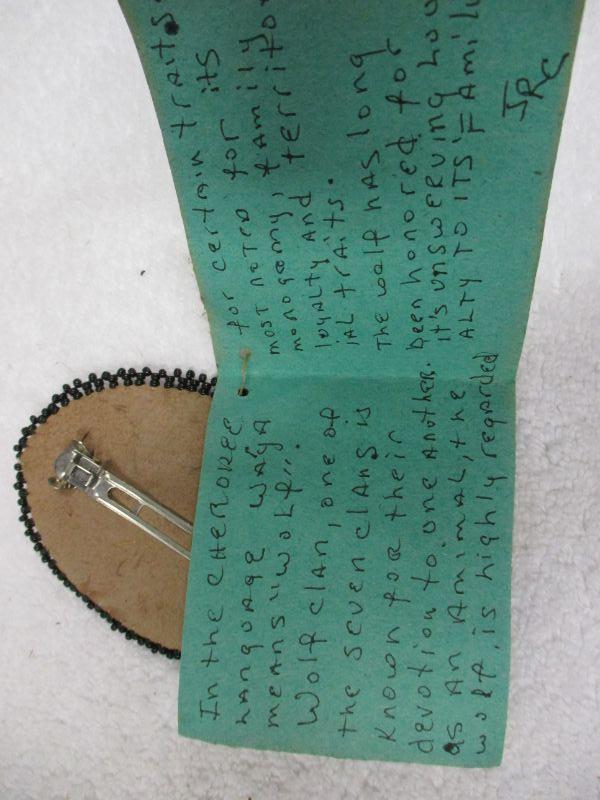 In the CHEROKEE
Language Waya
means "wolf".
Wolf clan, one of
the seven clans is
known for their
devotion to one another.
as an animal, the
wolf, is highly regarded
for certain traits.
most noted for its
monogamy, family
loyalty and territor
ial traits.
The wolf has long
been honored for
it's unswerving loy
ALTY TO ITS FAMILY
JRC